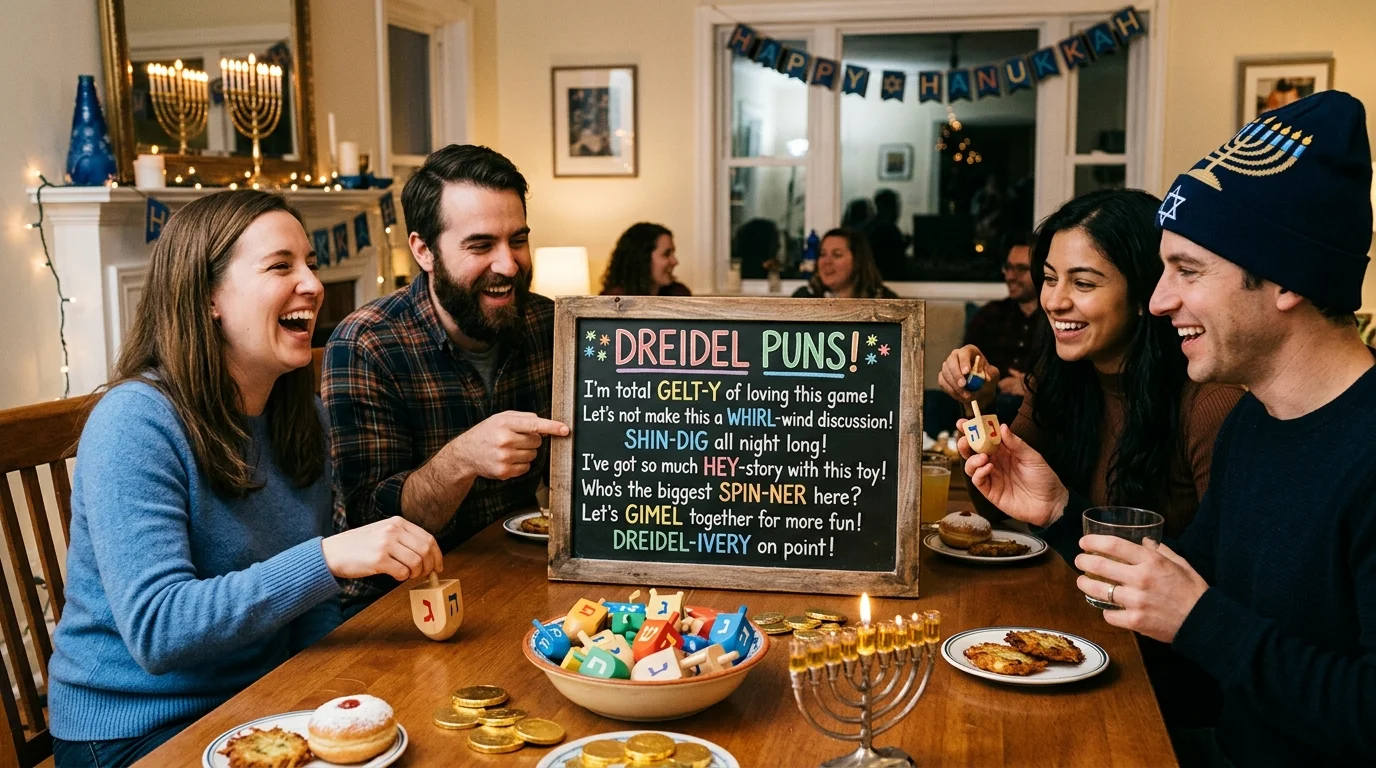 HAPPY ✡ HANUKKAH
DREIDEL PUNS!
I'm total GELT-Y of loving this game!
Let's not make this a WHIRL-wind discussion!
SHIN-DIG all night long!
I've got so much HEY-story with this toy!
Who's the biggest SPIN-NER here?
Let's GIMEL together for more fun!
DREIDEL-IVERY on point!
ג ה